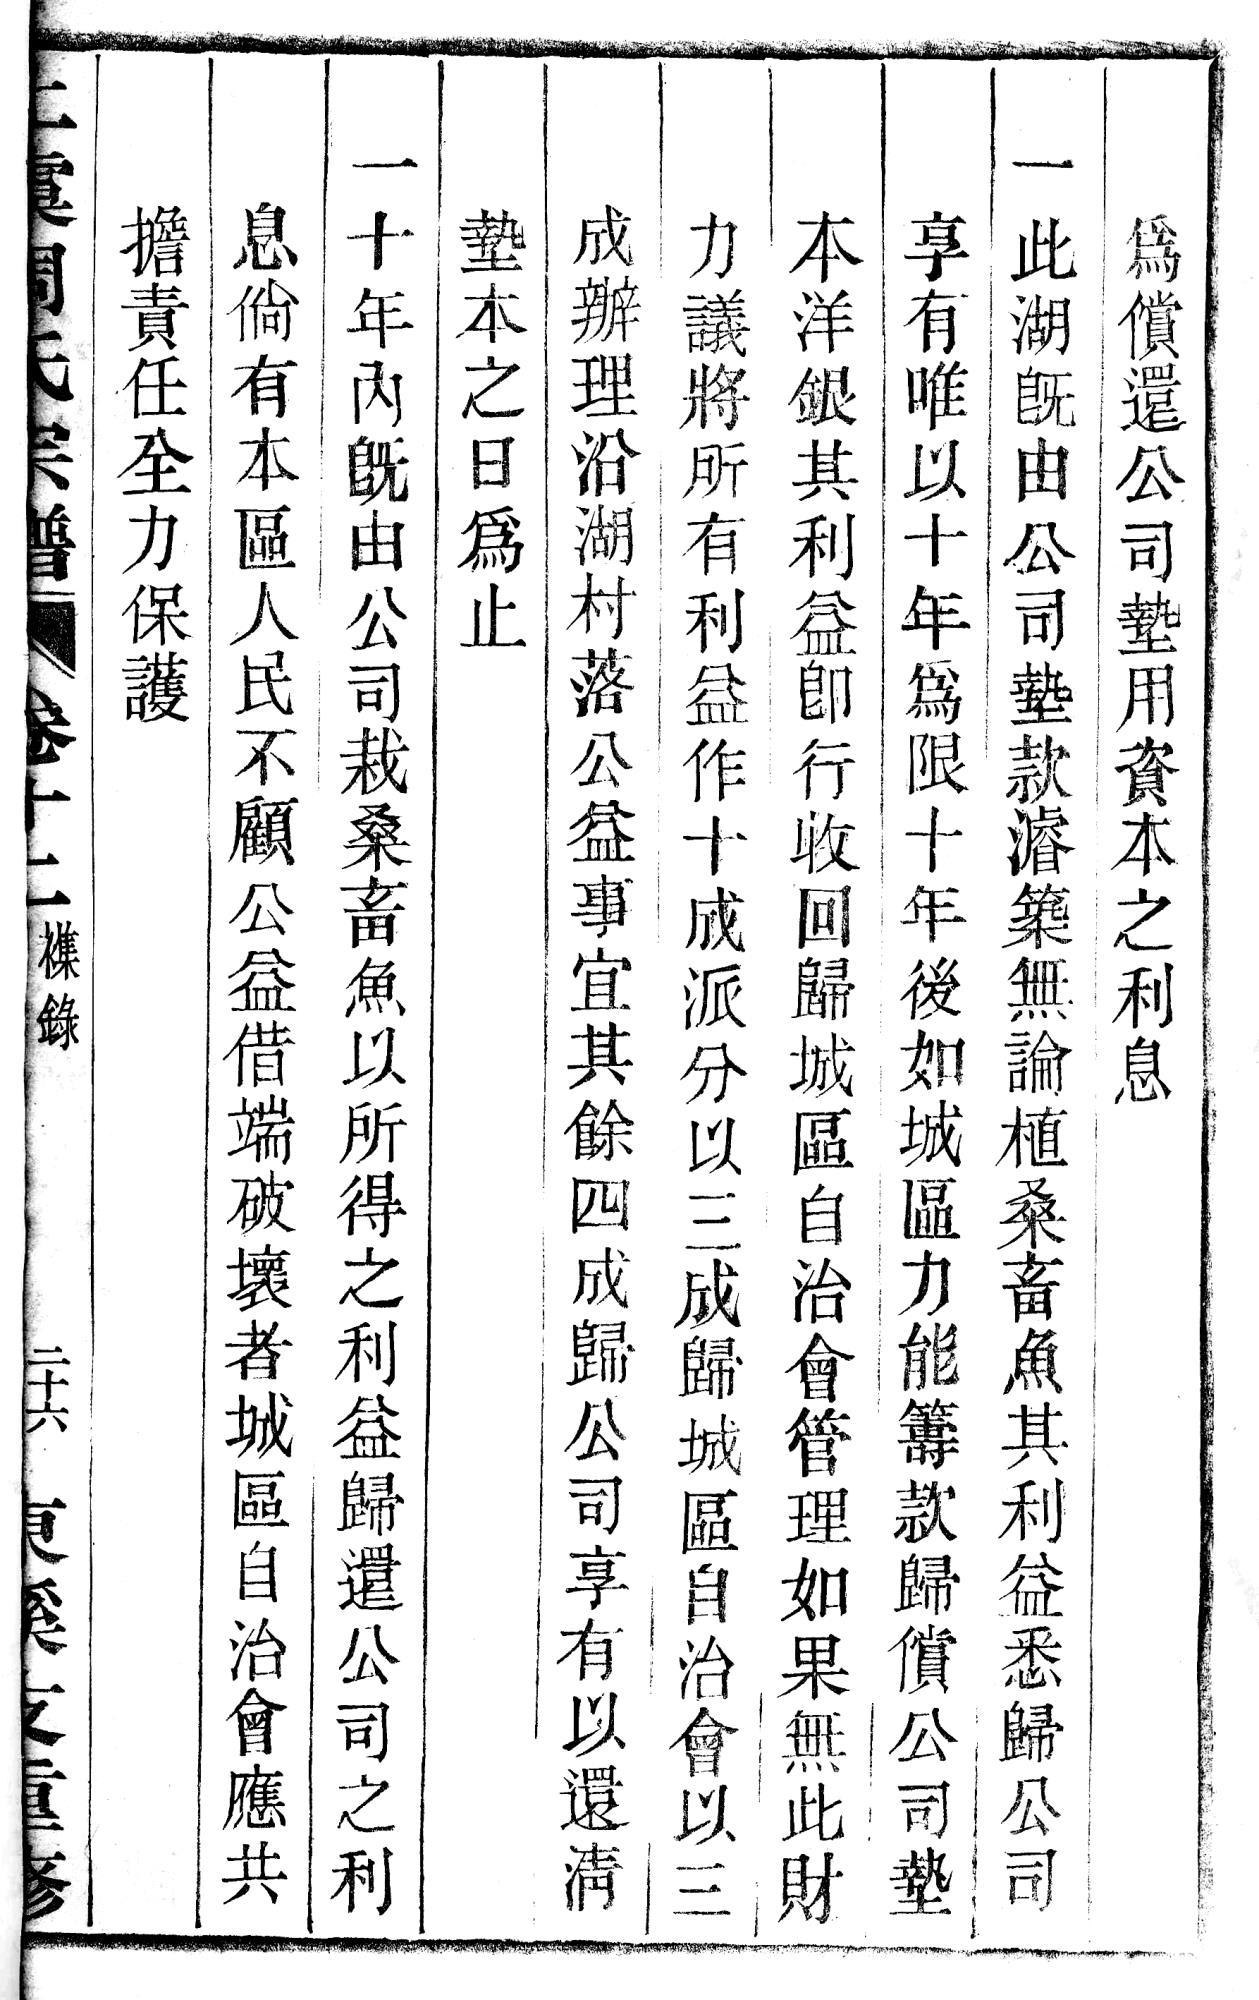 爲償還公司墊用資本之利息
一此湖旣由公司墊款濬築無論植桑畜魚其利益悉歸公司
享有唯以十年爲限十年後如城區力能籌款歸償公司墊
本洋銀其利益卽行收回歸城區自治會管理如果無此財
力議將所有利益作十成派分以三成歸城區自治會以三
成辦理沿湖村落公益事宜其餘四成歸公司享有以還淸
墊本之日爲止
一十年內旣由公司栽桑畜魚以所得之利益歸還公司之利
息倘有本區人民不顧公益借端破壞者城區自治會應共
擔責任全力保護
上虞周氏宗譜 卷十二 襍錄 二十六 東溪支重修